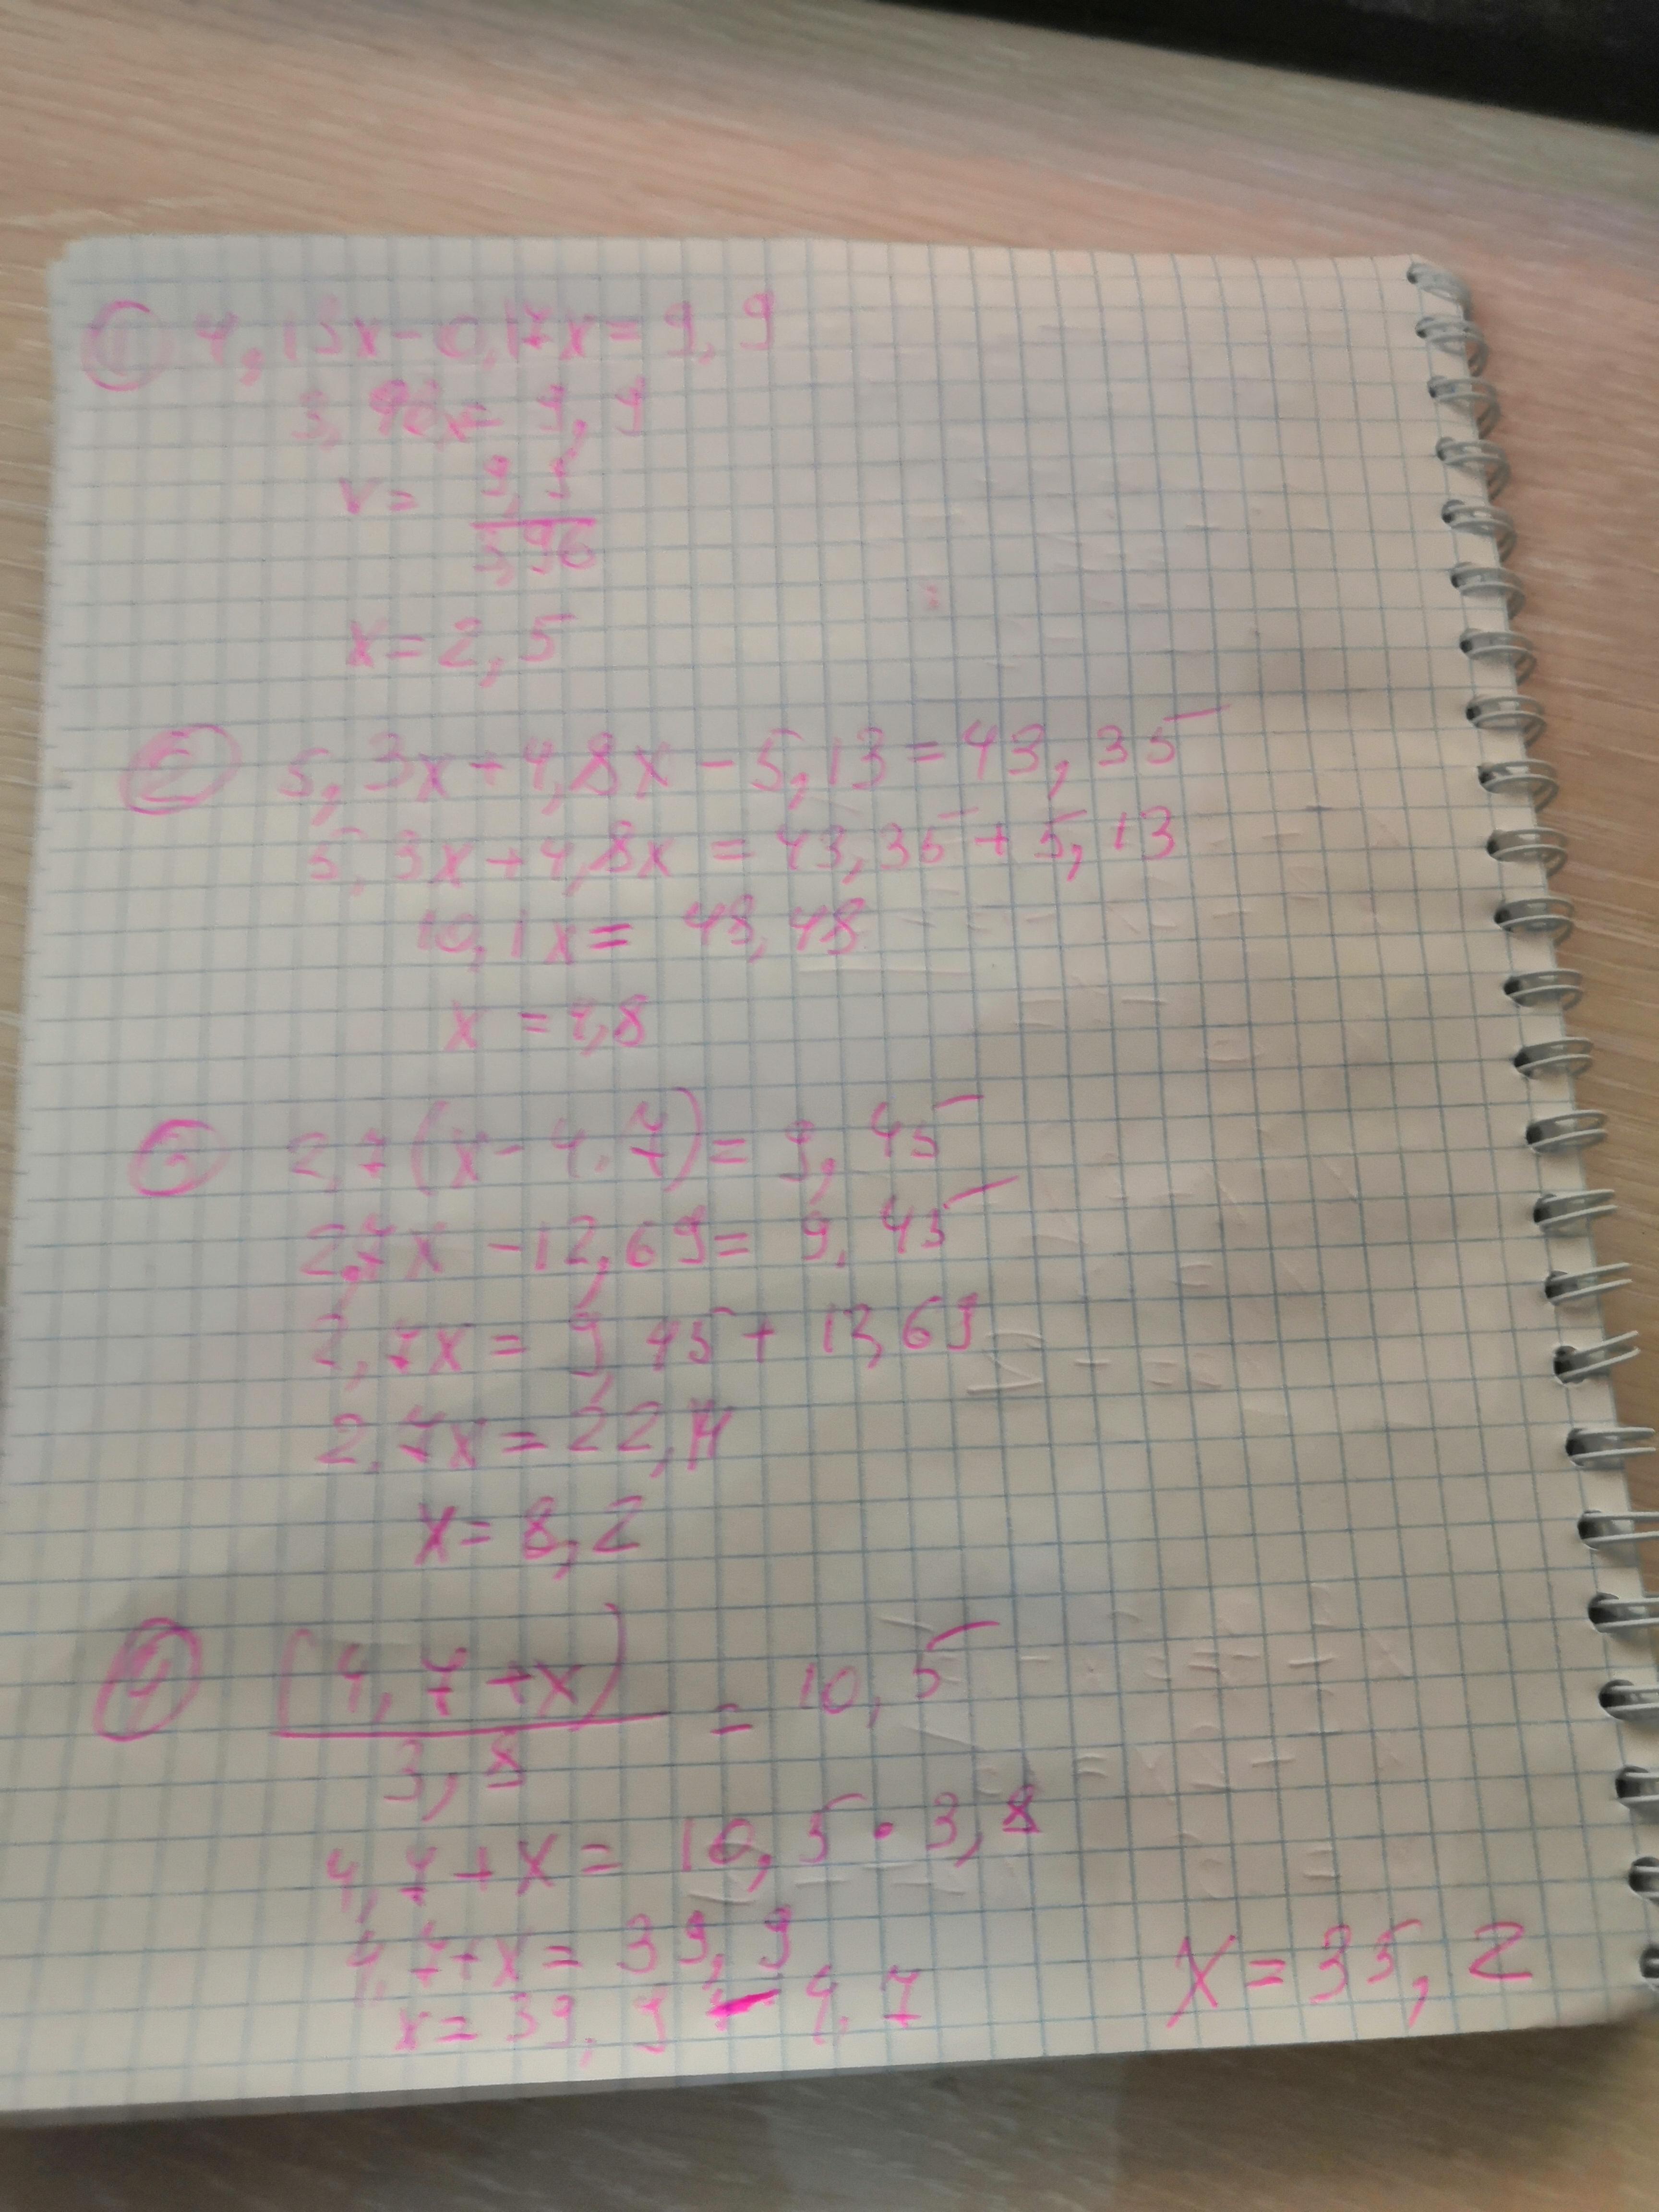 ① 4,13x - 0,17x = 9,9
3,96x = 9,9
x = 9,9 / 3,96
x = 2,5
② 5,3x + 4,8x - 5,13 = 43,35
5,3x + 4,8x = 43,35 + 5,13
10,1x = 48,48
x = 4,8
③ 2,7(x - 4,7) = 9,45
2,7x - 12,69 = 9,45
2,7x = 9,45 + 12,69
2,7x = 22,14
x = 8,2
④ (4,7 + x) / 3,8 = 10,5
4,7 + x = 10,5 · 3,8
4,7 + x = 39,9
x = 39,9 - 4,7
x = 35,2